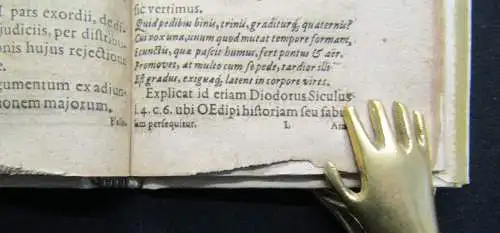 I pars exordii, dedi-
judiciis, per distin-
onis hujus rejectione
rgumentum ex adjun-
onem majorum.
sic vertimus.
Quid pedibus binis, trinis, graditurq́, quaternis?
Cui vox una, unum quod mutat tempore formam,
E cunctis, quæ pascit humus, fert pontus & aër.
Promovet, at multo cum se pede, tardior illi
Est gradus, exiguæq́, latent in corpore vires.
Explicat id etiam Diodorus Siculus
l. 4. c. 6. ubi OEdipi historiam seu fabu
lam persequitur. L